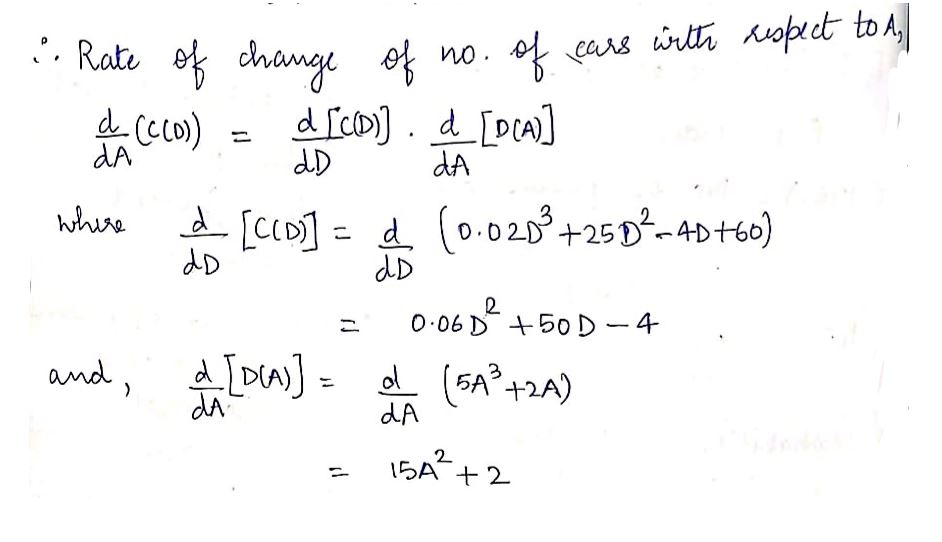 ∴ Rate of change of no. of cars with respect to A,
d/dA (C(D)) = d[C(D)]/dD . d/dA [D(A)]
where d/dD [C(D)] = d/dD (0.02D³+25D²-4D+60)
= 0.06D² +50D-4
and, d/dA [D(A)] = d/dA (5A³+2A)
= 15A²+2